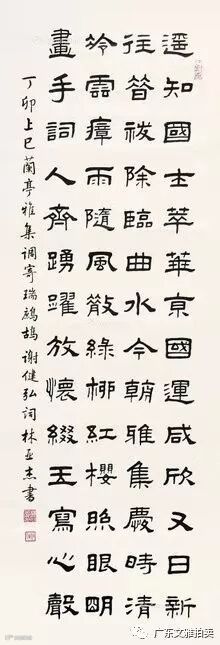 遥知國士萃華京國運咸欣又日新
往昔祓除臨曲水今朝雅集慶時清
冷雲瘴雨隨風散綠柳紅櫻照眼明
畫手詞人齊踴躍放懷綴玉寫心聲
丁卯上巳蘭亭雅集調寄瑞鷓鴣謝健弘詞林亚杰書
广东文雅拍卖